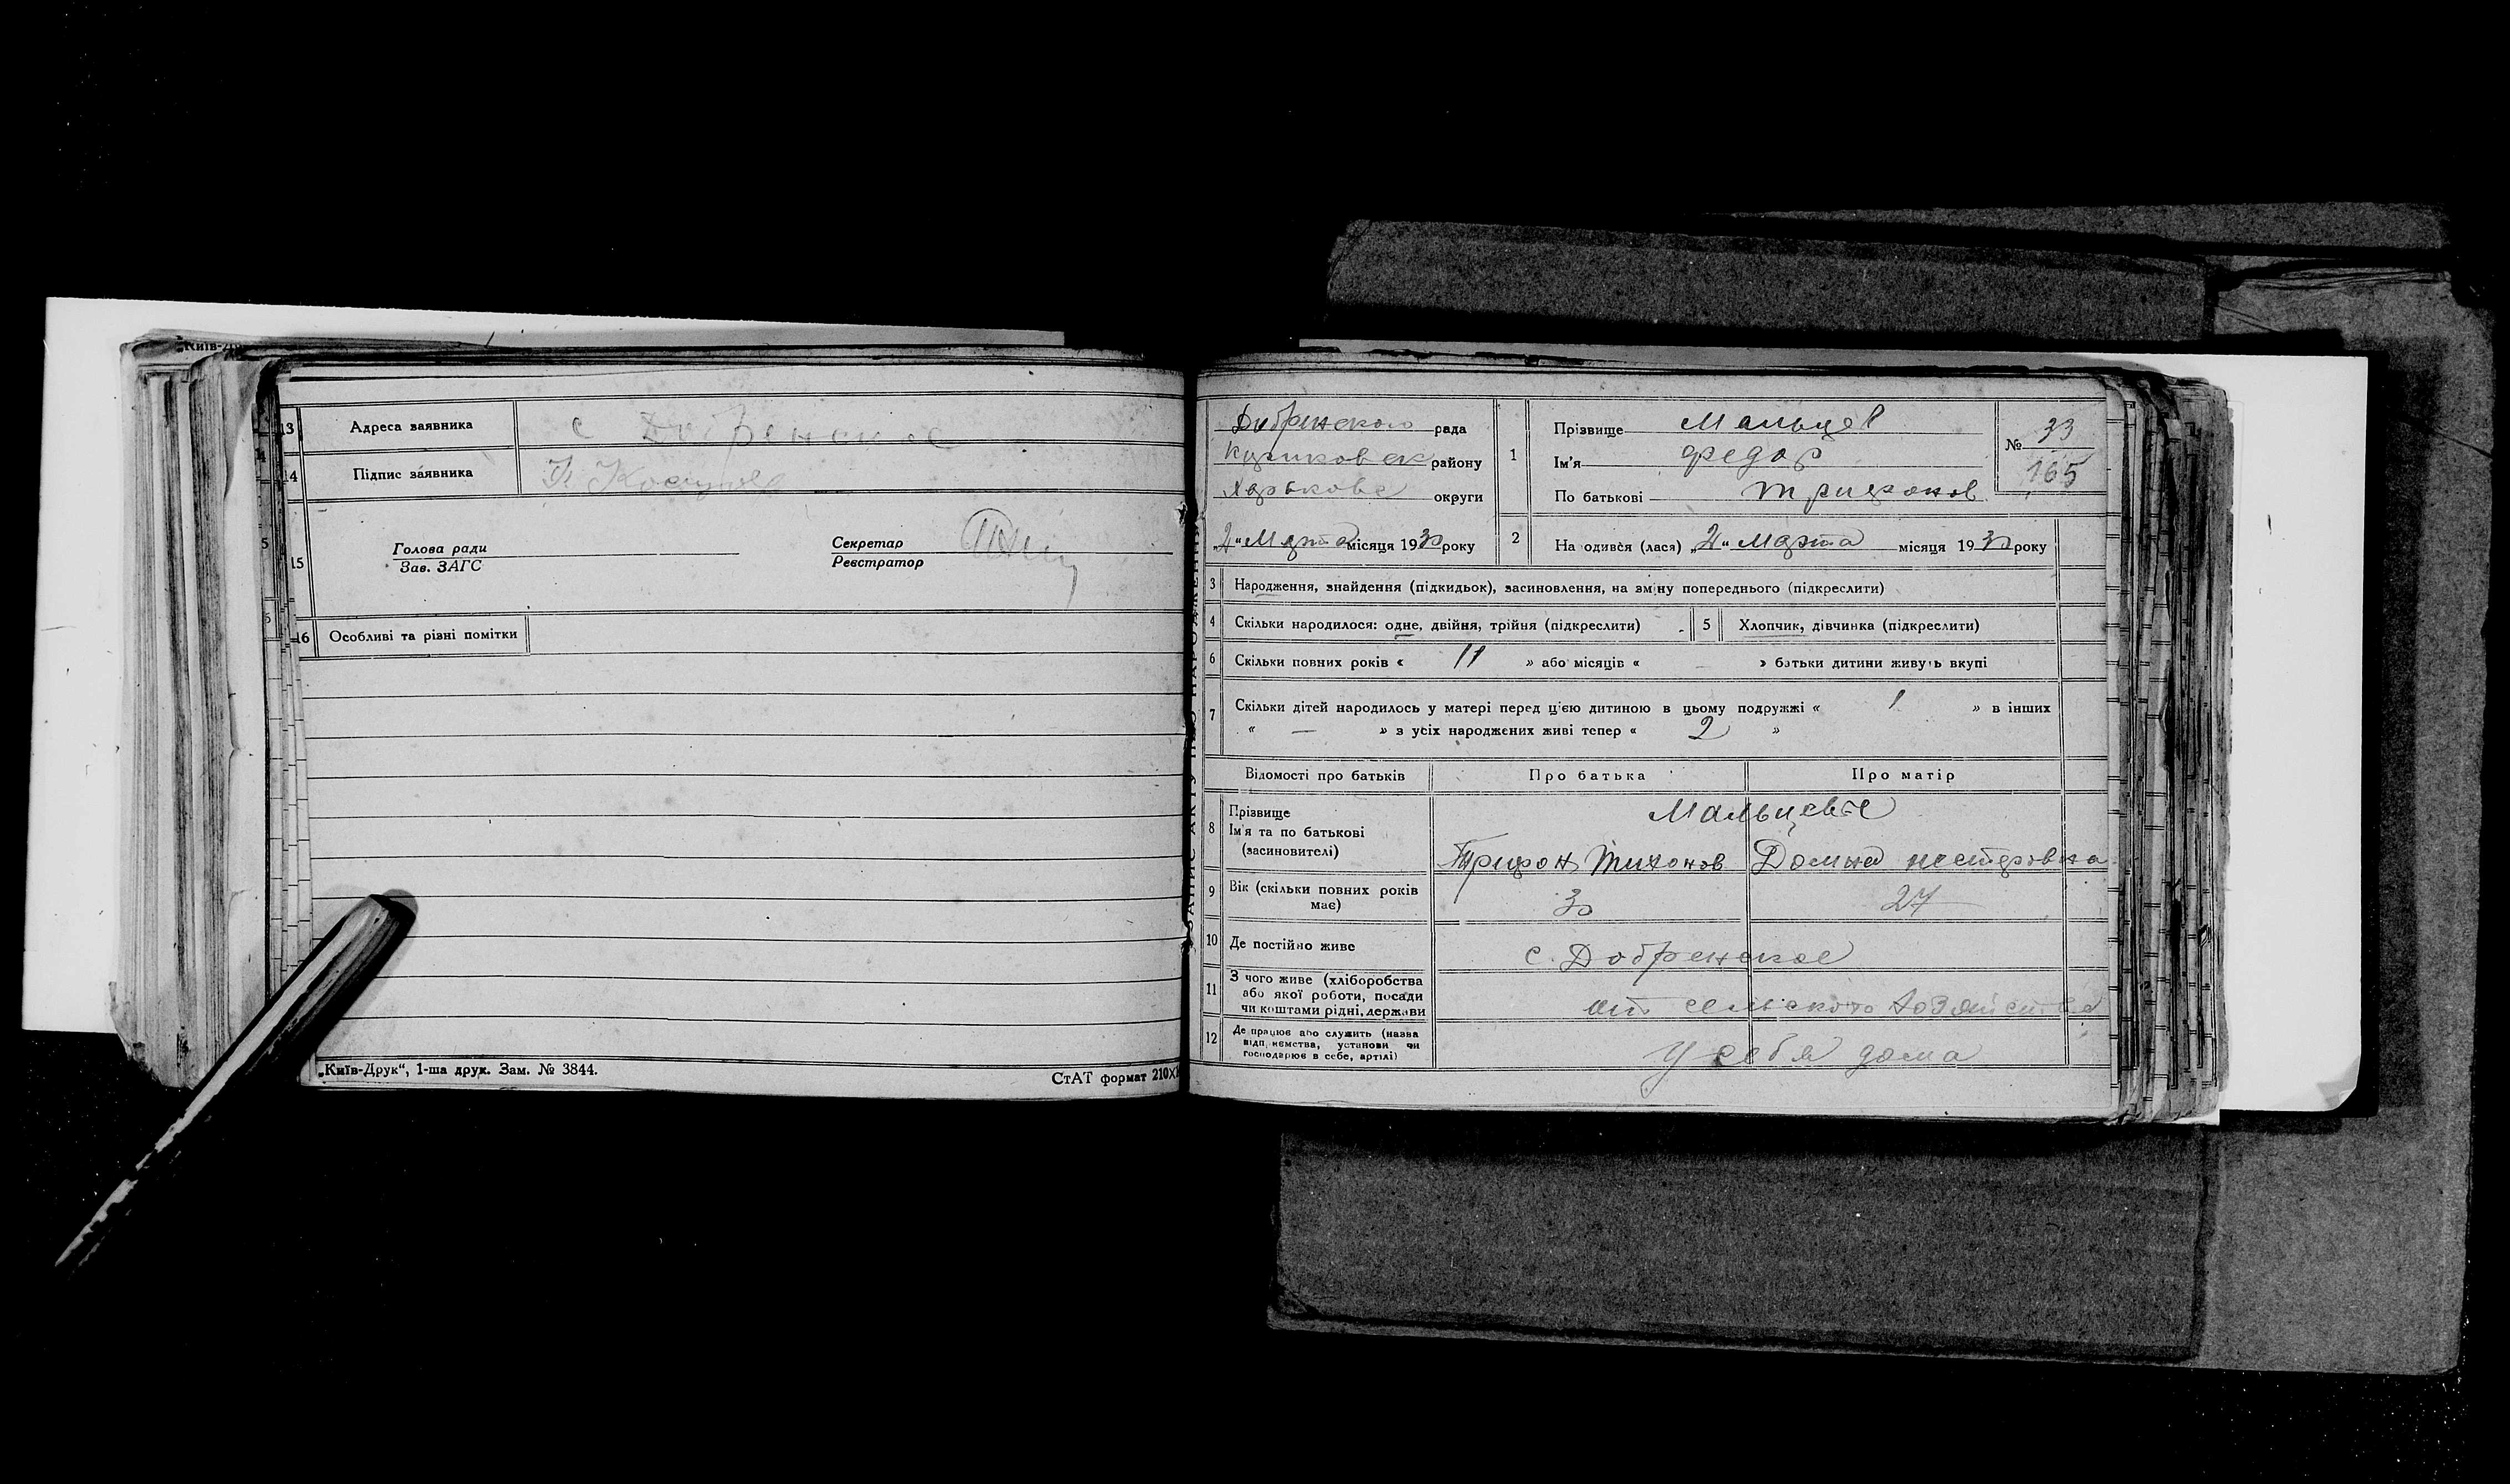 13 Адреса заявника с Добренское
14 Підпис заявника
15 Голова ради
Зав. ЗАГС
Секретар
Реєстратор
16 Особливі та різні помітки
„Київ-Друк“, 1-ша друк. Зам. № 3844.
СтАТ формат 210×
Добренского рада
району
Харькова округи
„2“ Марта місяця 1930 року
1 Прізвище Мальцев
Ім'я Федор
По батькові Трифонов
№ 33
165
2 На одився (лася) „2“ Марта місяця 1930 року
3 Народження, знайдення (підкидьок), засиновлення, на зміну попереднього (підкреслити)
4 Скільки народилося: одне, двійня, трійня (підкреслити)
5 Хлопчик, дівчинка (підкреслити)
6 Скільки повних років « 11 » або місяців « — » батьки дитини живуть вкупі
7 Скільки дітей народилось у матері перед ц'єю дитиною в цьому подружжі « 1 » в інших
« — » з усіх народжених живі тепер « 2 »
Відомості про батьків Про батька Про матір
8 Прізвище
Ім'я та по батькові
(засиновителі)
Мальцевы
Трифон Тихонов Домна нестеровна
9 Вік (скільки повних років
має)
30 27
10 Де постійно живе с. Добренское
11 З чого живе (хліборобства
або якої роботи, посади
чи коштами рідні, держави
от сельского хозяйства
12 Де працює або служить (назва
відп. ємства, установи чи
господарює в себе, артілі)
У себя дома